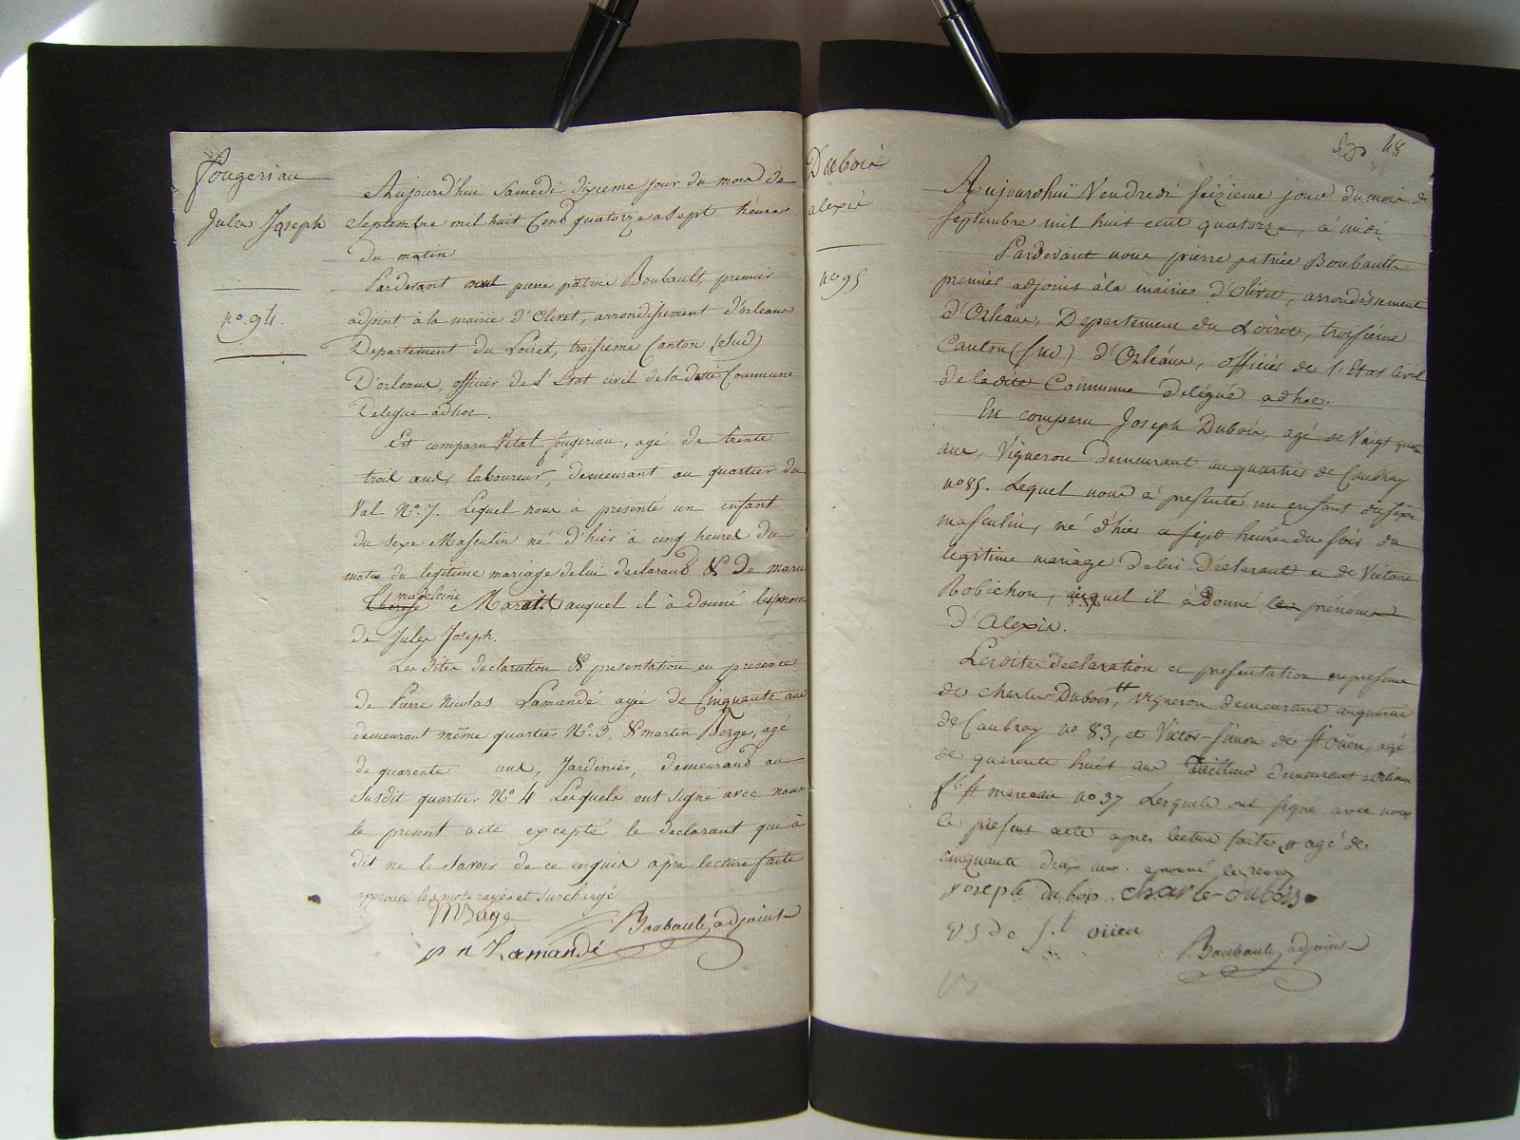 Fougeriau
Jules Joseph
no. 94.
Aujourd'hui Samedi dixieme jour du mois de
Septembre mil huit Cent quatorze a Sept heures
du matin
Pardevant nous pierre patrice Boubault, premier
adjoint à la mairie d'Olivet, arrondissement d'orleans
Departement du Loiret, troisieme Canton (Sud)
D'orleans, officier de l'Etat civil de la dite Commune
Delegué adhoc.
Est comparu Vital fougeriau, agé de trente
trois ans laboureur, demeurant au quartier du
Val No. 7. Lequel nous a presenté un enfant
du sexe Masculin né d'hier à cinq heures du
matin du legitime mariage de lui declarant & De marie
magdeleine
Therese Marait auquel il à donné les prenoms
de Jules Joseph.
Les dites declaration & presentation en presence
de Pierre Nicolas Lamandé agé de Cinquante ans
demeurant même quartier No. 3. & martin Berge, agé
de quarente ans, Jardinier, demeurand au
Susdit quartier No 4 Lesquels ont signé avec nous
le present acte excepté le declarant qui à
dit ne le Savoir de ce enquis après lecture faite
approuvé les mots rayés et surchargé
MBerge
p n Lamandé
Boubault, adjoint
48
Dubois
alexis
no 95
Aujourdhuï Vendredi seizieme jour du mois de
septembre mil huit cent quatorze, à midi
Pardevant nous pierre patrice Boubault
premier adjoint à la mairie d'Olivet, arrondissement
d'Orléans, Departement du Loiret, troisieme
Canton (sud) d'Orléans, officier de l'Etat Civil
de la dite Commune délégué adhoc.
Est comparu Joseph Dubois, agé de Vingt quatre
ans, Vigneron demeurant au quartier de Caubray
no 85. Lequel nous à présenté un enfant du sexe
masculin, né d'hier a sept heures du soir du
legitime mariage de lui Déclarant et de Victoire
Robichon, auquel il à donné les prénoms
d'Alexis.
Les dites declaration et presentation en presence
de charles Dubois, Vigneron demeurant au quartier
de Caubray no 83, et Victor-simon de St ouen, agé
de quarente huit ans demeurant à orleans
fg St marceau no 37 Lesquels ont signé avec nous
le present acte apres lecture faite, # agé de
cinquante deux ans. aprouvé le renvoi
Joseph dubois. charle-dubois
VS de St. ouen
Boubault, adjoint